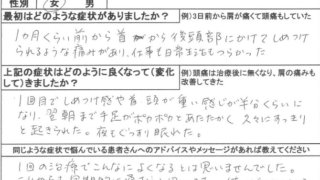 性別 / 女 / 男
最初はどのような症状がありましたか？ 例)3日前から肩が痛くて頭痛もしていた
1ヵ月くらい前から首から後頭部にかけてしめつけ
られるような痛みがあり、仕事も日常生活もつらかった
上記の症状はどのように良くなって(変化して)きましたか？ 例)頭痛は治療後に無くなり、肩の痛みも改善してきた
1回目でしめつけ感や首 頭が重い感じが半分くらいに
なり、翌朝まで手足がポカポカとあたたかく 久々にすっきり
と起きられた。夜もぐっすり眠れた。
同じような症状で悩んでいる患者さんへのアドバイスやメッセージがあれば教えてください
1回の治療でこんなによくなるとは思いませんでした。